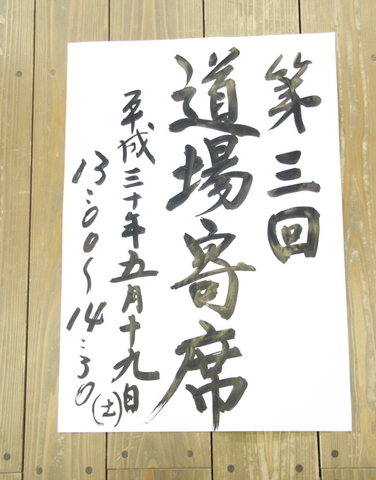 第三回
道場寄席
平成三十年五月十九日(土)
13:00〜14:30